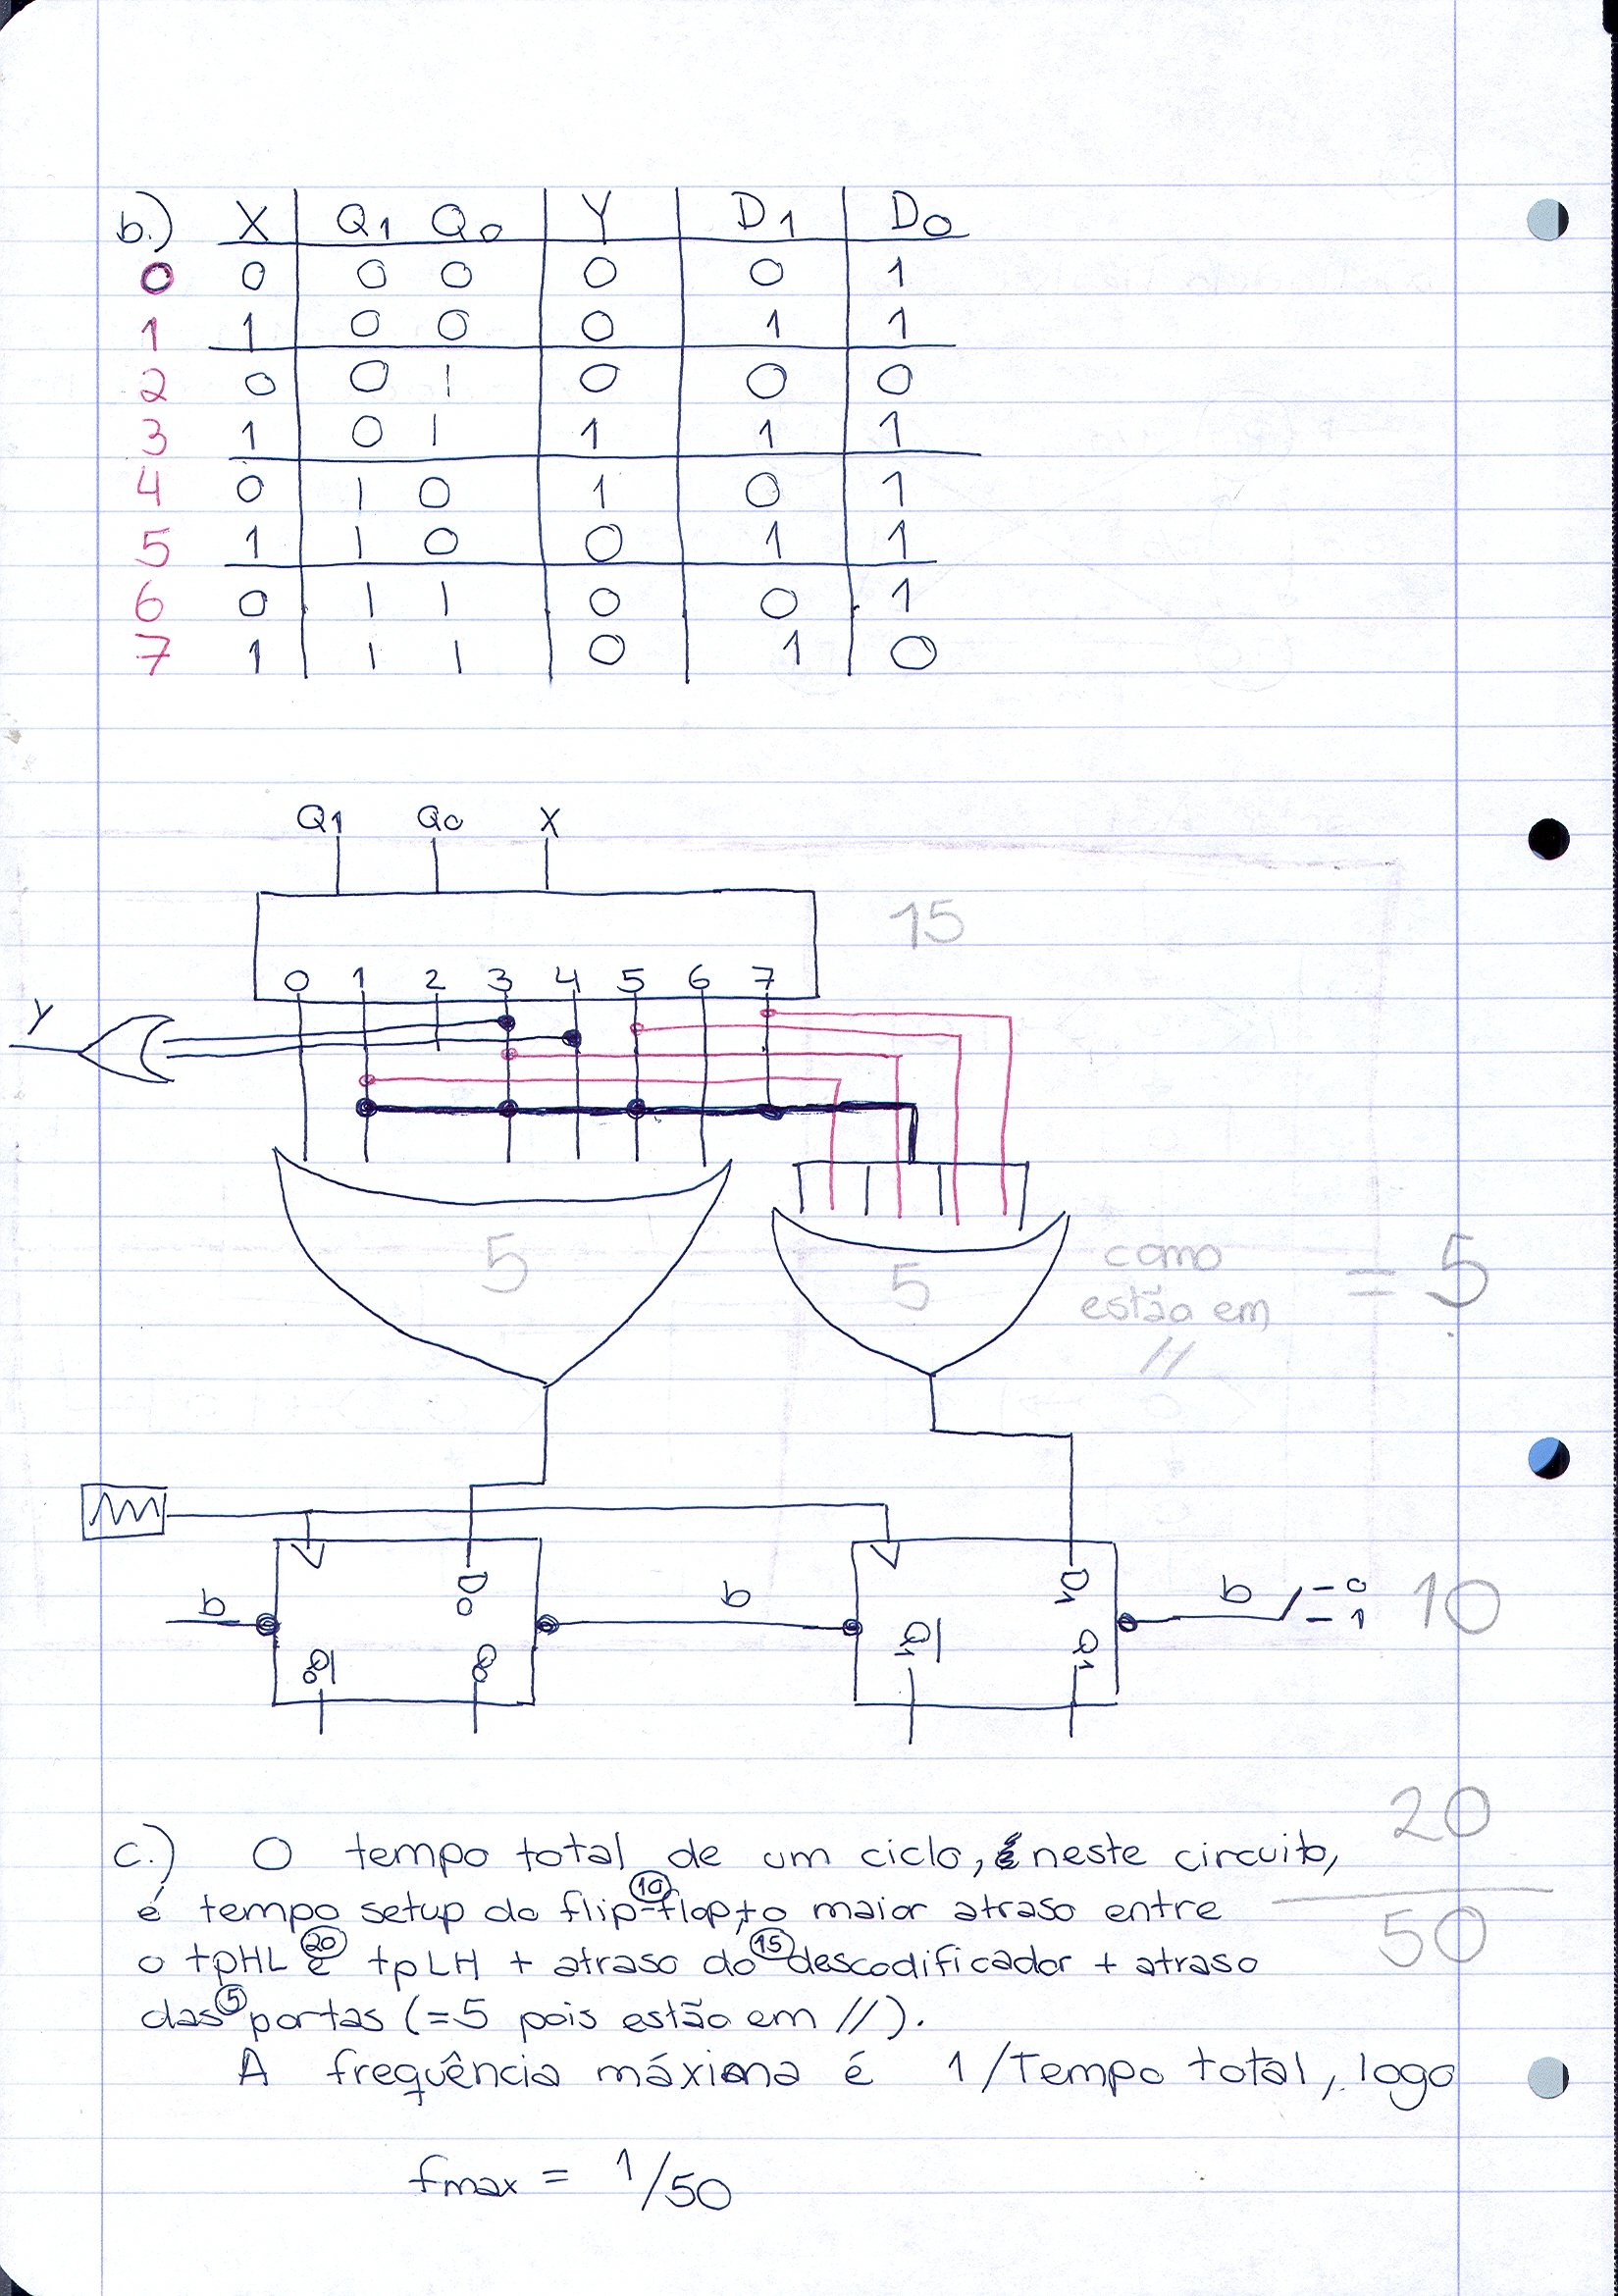 b.) X Q1 Q0 Y D1 D0
0 0 0 0 0 0 1
1 1 0 0 0 1 1
2 0 0 1 0 0 0
3 1 0 1 1 1 1
4 0 1 0 1 0 1
5 1 1 0 0 1 1
6 0 1 1 0 0 1
7 1 1 1 0 1 0
Q1 Q0 X
15
0 1 2 3 4 5 6 7
Y
5 5 como estão em // = 5
b D0 b D1 b - 0 - 1 10
Q0 Q0 Q1 Q1
20
c.) O tempo total de um ciclo, neste circuito,
é tempo setup do flip-flop + o maior atraso entre
10
o tpHL e tpLH + atraso do descodificador + atraso
20 15
50
das portas (=5 pois estão em //).
5
A frequência máxima é 1/Tempo total, logo
fmax = 1/50